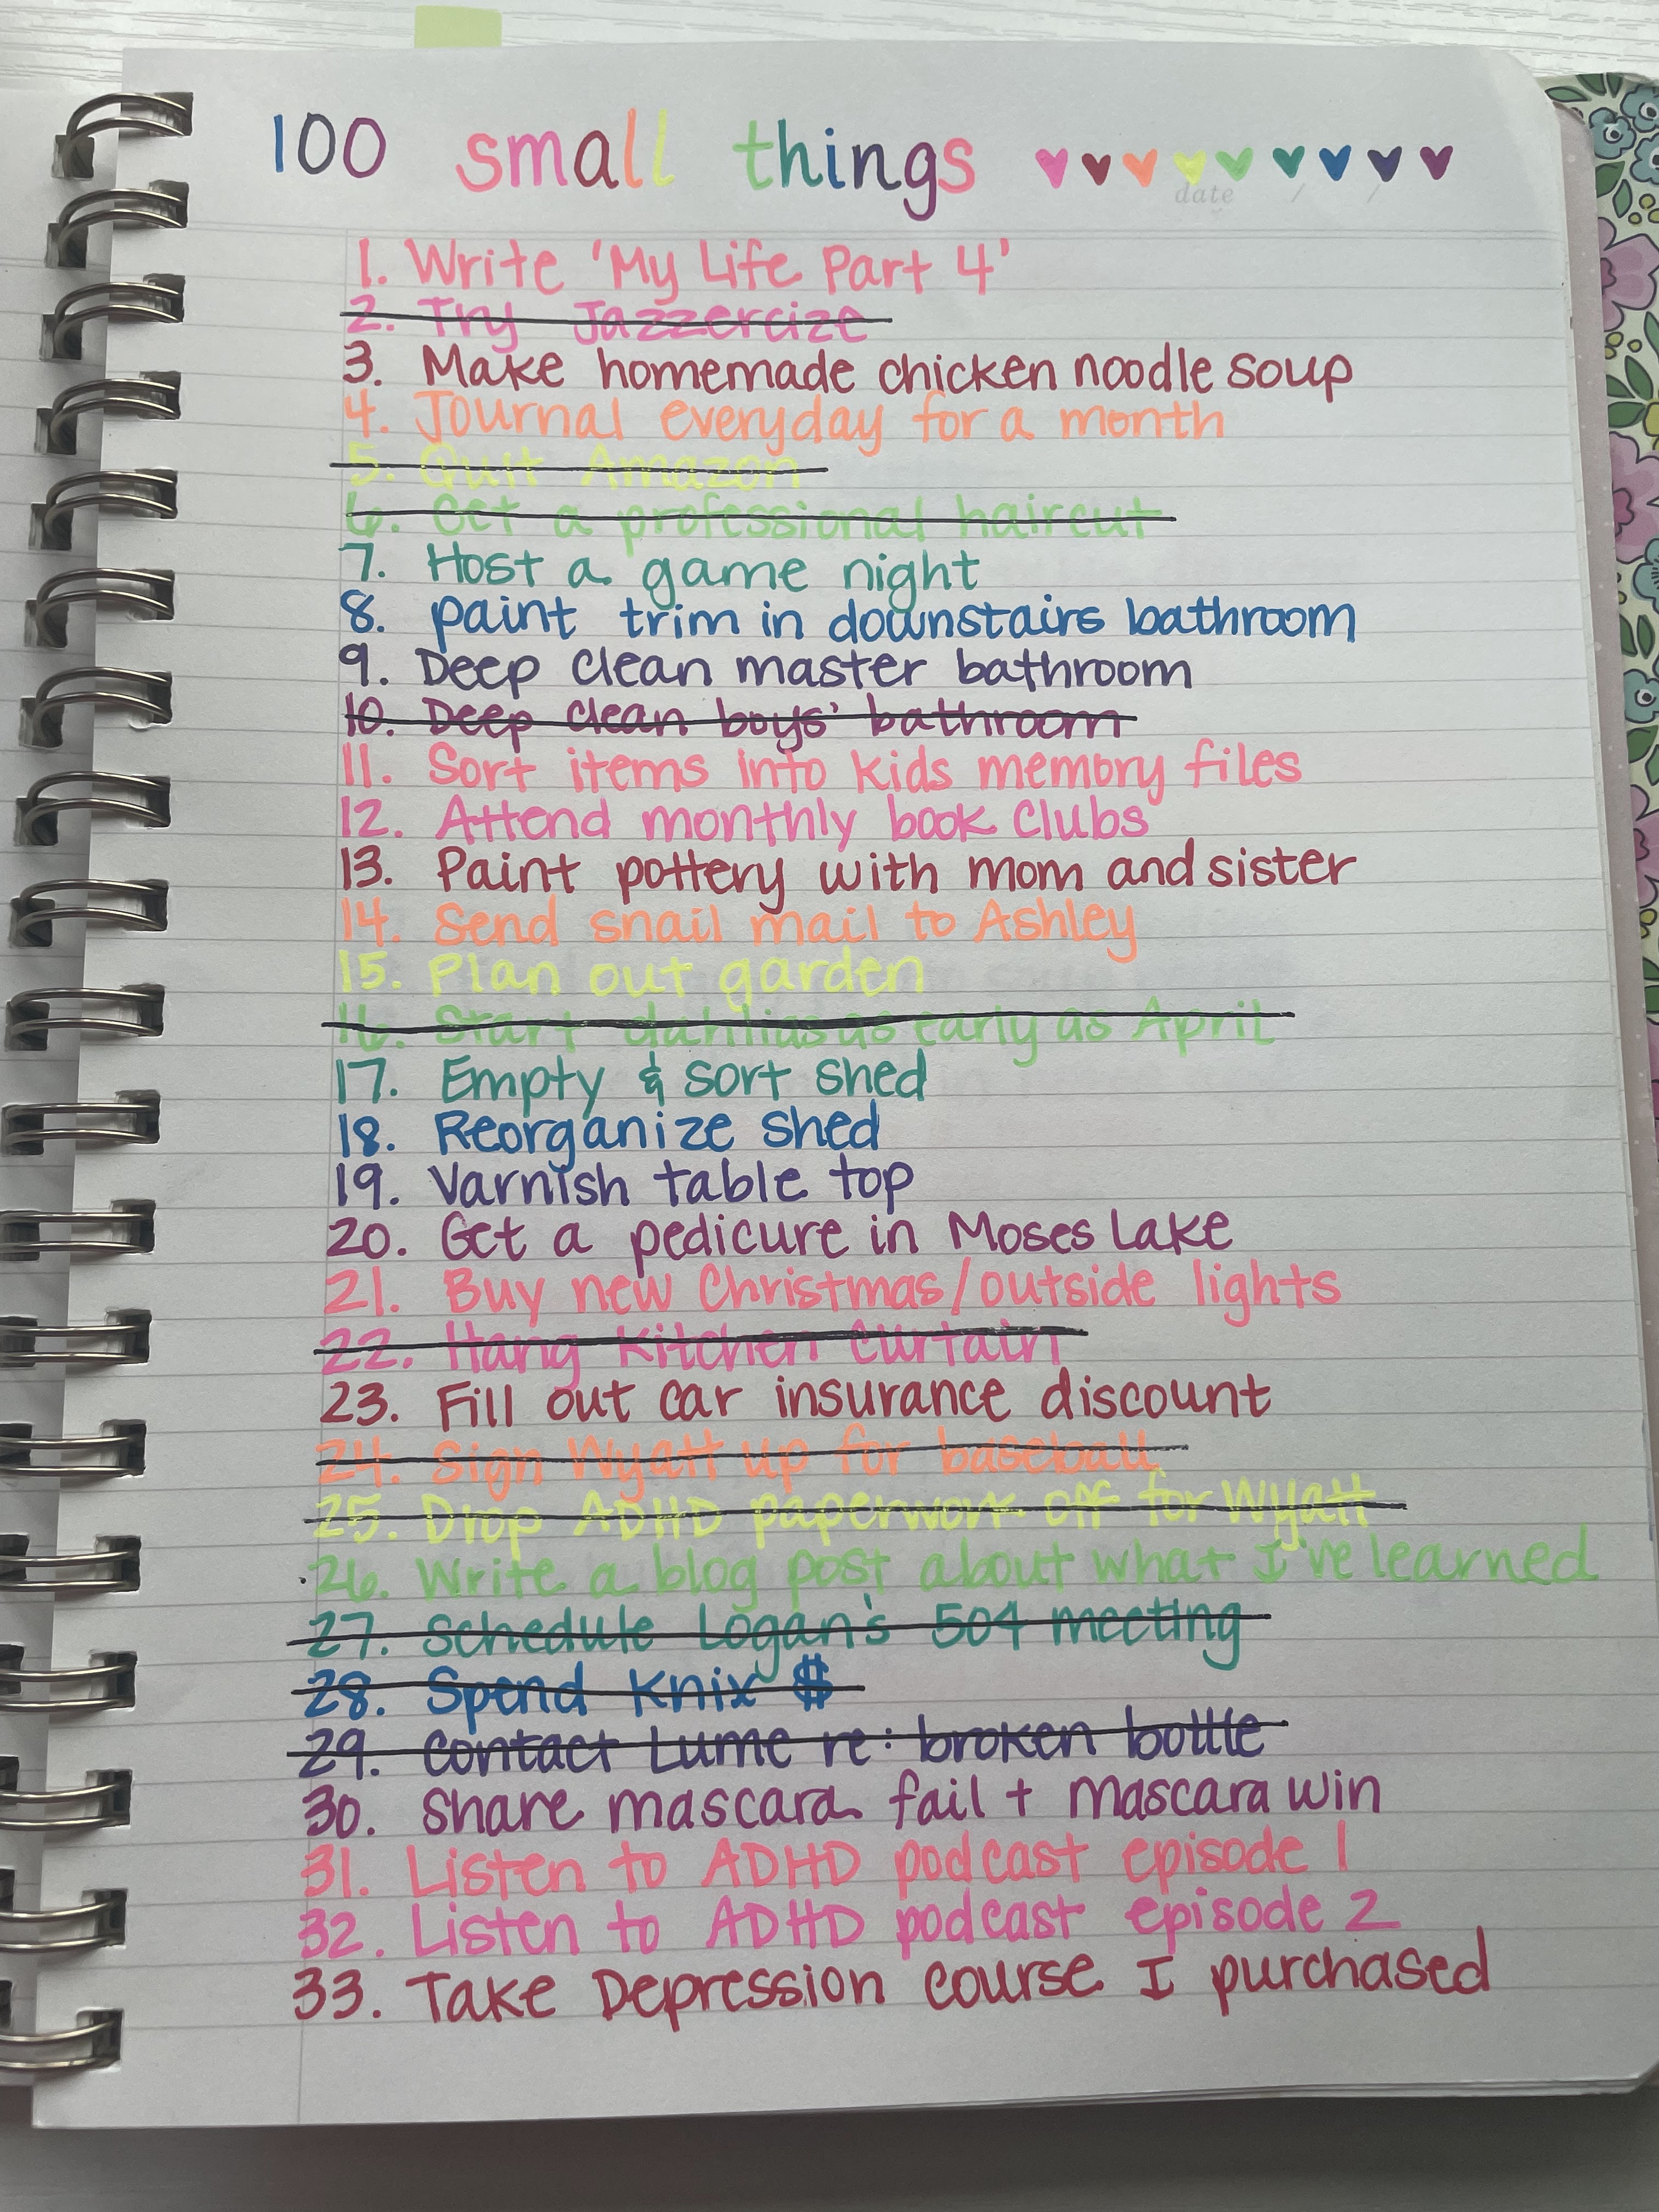 100 small things
date / /
1. Write 'My Life Part 4'
2. Try Jazzercize
3. Make homemade chicken noodle soup
4. Journal everyday for a month
5. Quit Amazon
6. Get a professional haircut
7. Host a game night
8. paint trim in downstairs bathroom
9. Deep clean master bathroom
10. Deep clean boys' bathroom
11. Sort items into kids memory files
12. Attend monthly book clubs
13. Paint pottery with mom and sister
14. Send snail mail to Ashley
15. Plan out garden
16. Start dahlias as early as April
17. Empty & sort shed
18. Reorganize shed
19. Varnish table top
20. Get a pedicure in Moses Lake
21. Buy new Christmas/outside lights
22. Hang kitchen curtain
23. Fill out car insurance discount
24. Sign Wyatt up for baseball
25. Drop ADHD paperwork off for Wyatt
26. Write a blog post about what I've learned
27. Schedule Logan's 504 meeting
28. Spend Knix $
29. Contact Lume re: broken bottle
30. Share mascara fail + mascara win
31. Listen to ADHD podcast episode 1
32. Listen to ADHD podcast episode 2
33. Take Depression course I purchased